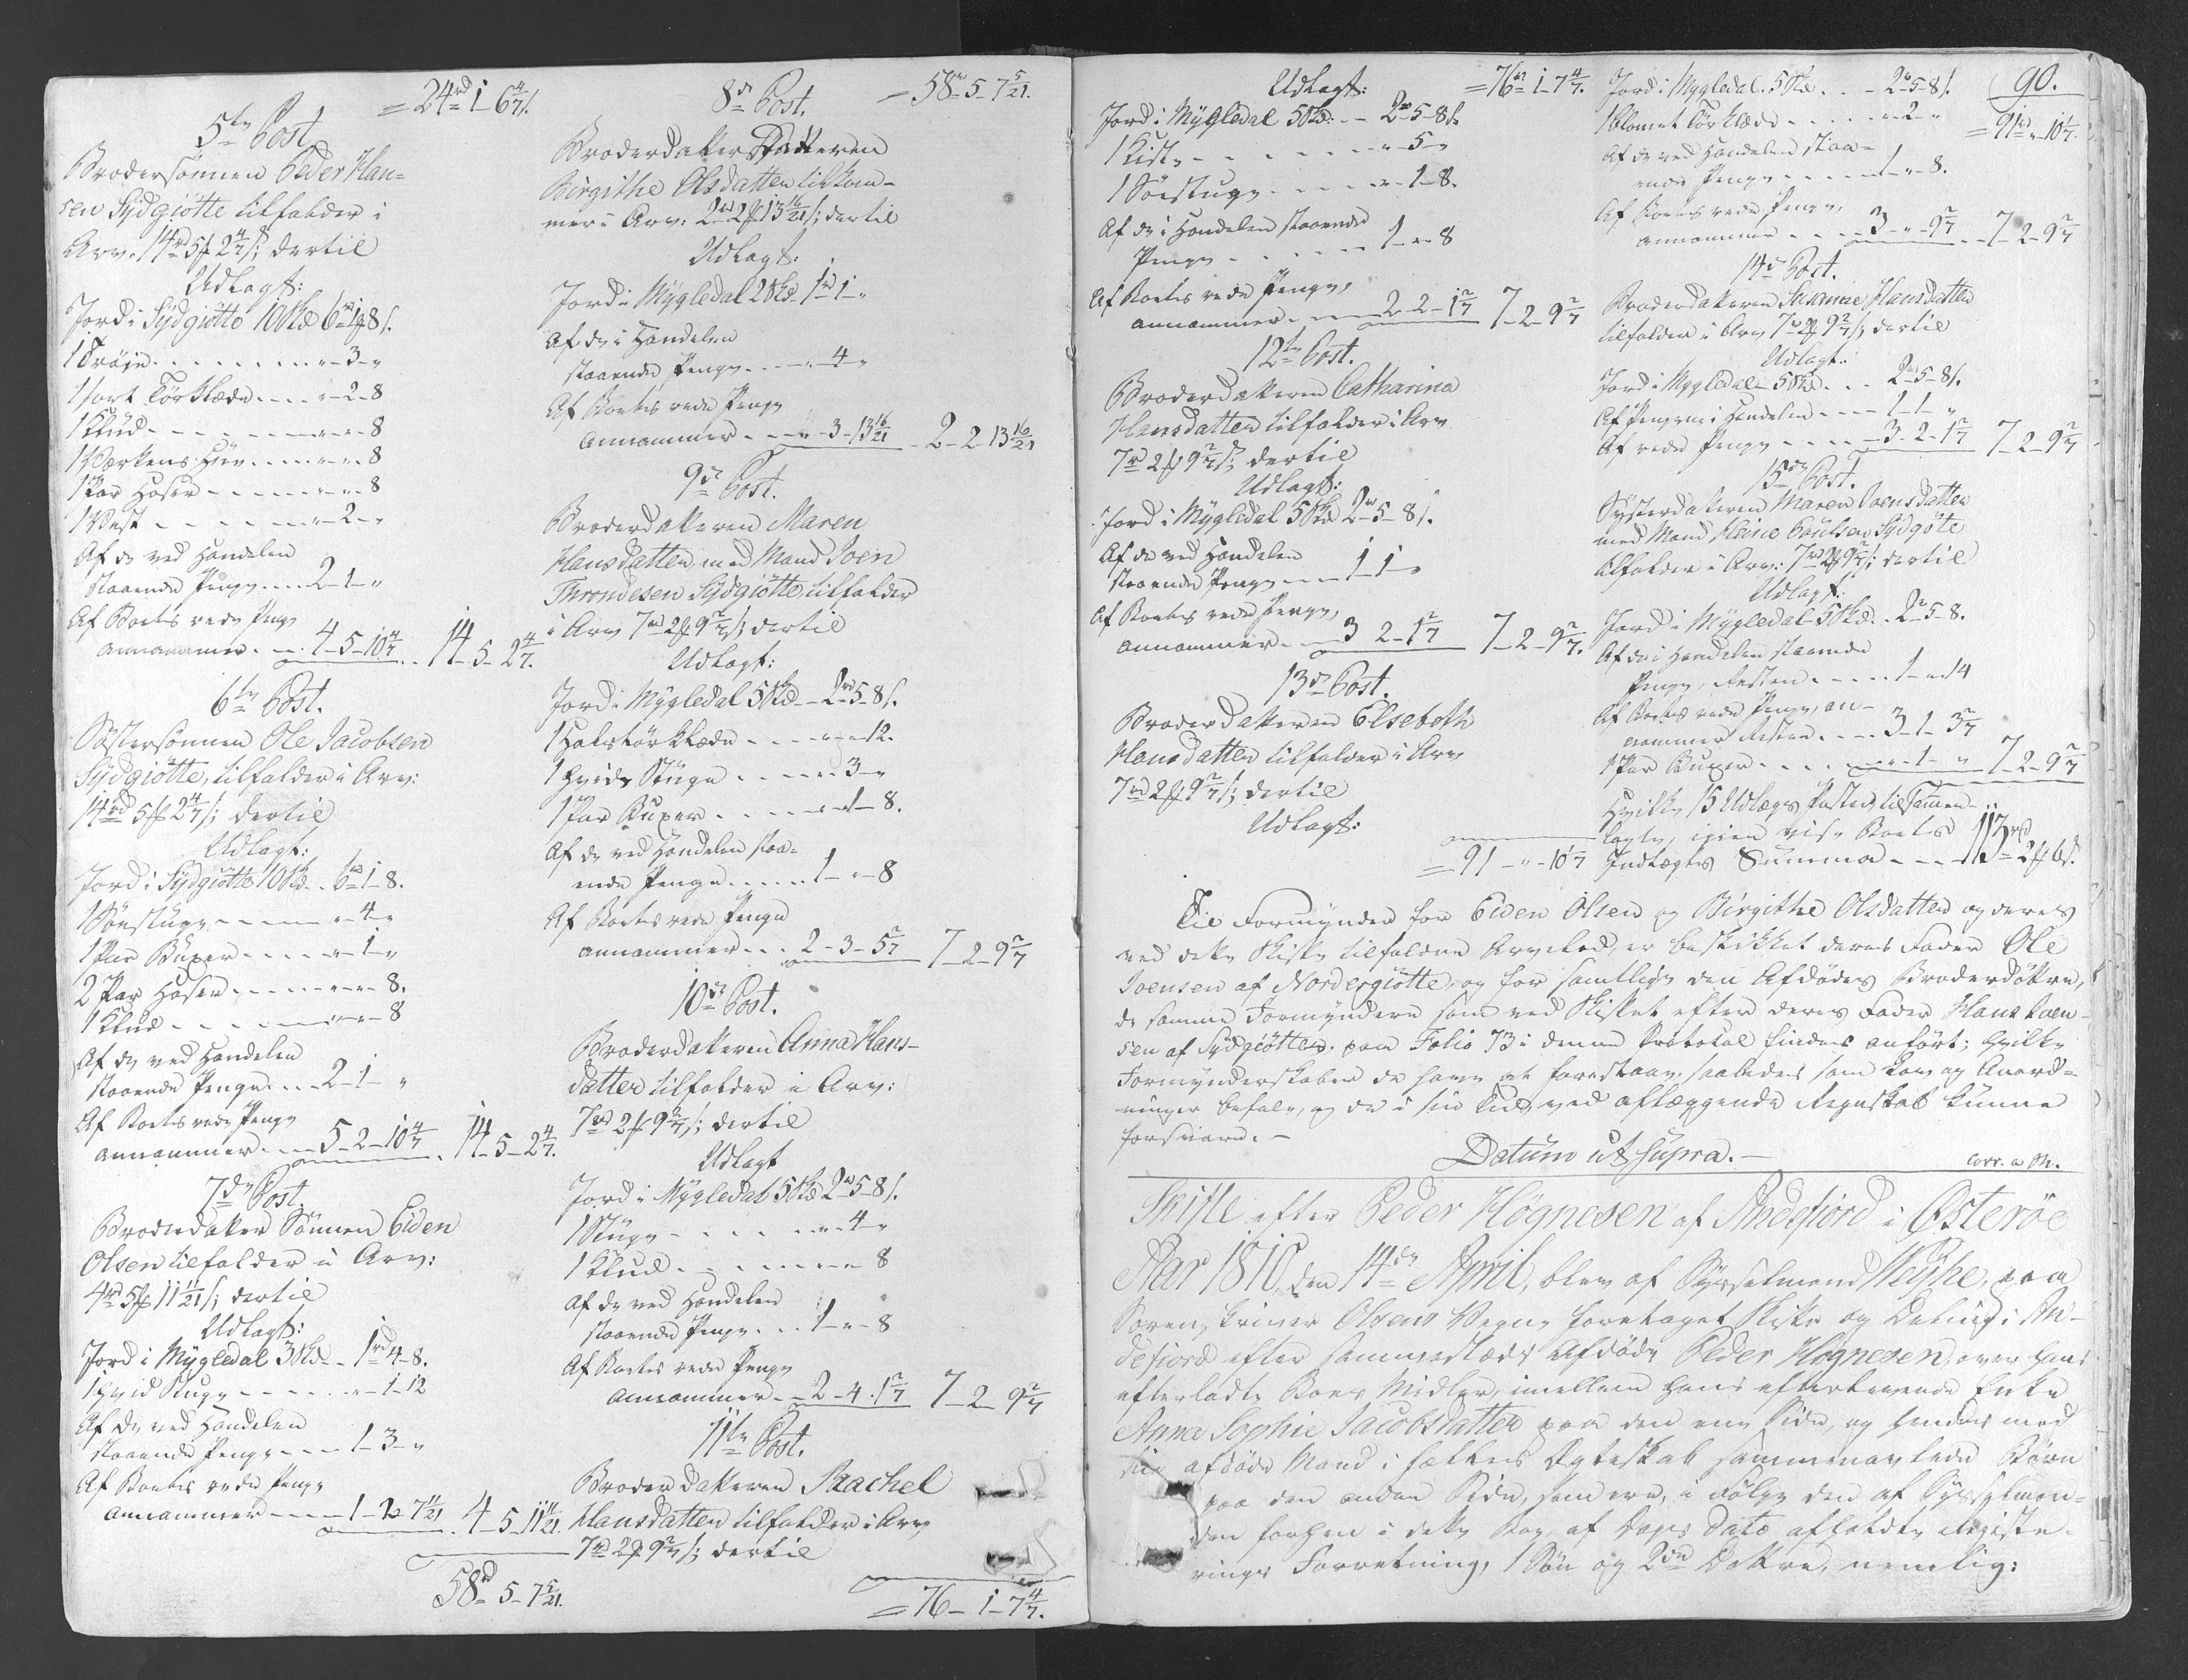 = 24rd 1 - 6 4/7 ß.
5te Post
Brodersönnen Peder Han=
sen Sydgiötte tilfalder i
Arv. 14rd 5 2 4/7 ß; dertil
Udlagt:
Jord i Sydgiötte 10 Skd 6rd 1 8 ß.
1 Tröje - - - - " - 3 - "
1 sort Törklæde - - - " - 2 - 8
1 Klud - - - - " - " - 8
1 Værkens Huv - - - " - " - 8
1 Par Hoser - - - - " - " - 8
1 Vest - - - - " - 2 - "
Af de ved Handelen
staaende Penge - - - 2 - 1 - "
Af Boets rede Penge
annammer - - - 4 - 5 - 10 4/7 - - 14 - 5 - 2 4/7.
6te Post.
Söstersönnen Ole Jacobsen
Sydgiötte, tilfalder i Arv:
14rd 5 2 4/7 ß; dertil
Udlagt:
Jord i Sydgiötte 10 Skd - 6rd 1 - 8.
1 Sönstuge - - - - " - 4 - "
1 Par Buxer - - - - " - 1 - "
2 Par Hoser - - - - " - " - 8.
1 Klud - - - - " - " - 8
Af de ved Handelen
staaende Penge - - - 2 - 1 - "
Af Boets rede Penge
annammer - - - 5 - 2 - 10 4/7 - 14 - 5 - 2 4/7.
7de Post.
Broderdatter Sönnen Eiden
Olsen tilfalder i Arv:
4rd 5 11 11/21 ß; dertil
Udlagt:
Jord i Mygledal 3 Skd - - 1rd 4 - 8.
1 hvid Stuge - - - - " - 1 - 12
Af de ved Handelen
staaende Penge - - - 1 - 3 - "
Af Boets rede Penge
annammer - - - 1 - 2 - 7 11/21 4 - 5 - 11 11/21.
58rd - 5 - 7 5/21.
8de Post. = 58rd - 5 - 7 5/21.
Broderdatter Datteren
Birgithe Olsdatter tilkom-
mer i Arv: 2rd 2 13 16/21 ß; dertil
Udlagt:
Jord i Mygledal 2 Skd - 1rd 1 - "
Af de i Handelen
staaende Penge - - - " - 4 - "
Af Boets rede Penge
annammer - - - " - 3 - 13 16/21 - 2 - 2 - 13 16/21
9de Post.
Broderdatteren Maren
Hansdatter, med Mand Joen
Throndesen Sydgiötte, tilfalder
i Arv 7rd 2 9 2/7 ß; dertil
Udlagt:
Jord i Mygledal 5 Skd - - 2rd 5 - 8 ß.
1 Halstörklæde - - - " - " - 12.
1 hvide Stuge - - - " - 3 - "
1 Par Buxer - - - - " - 1 - 8.
Af de ved Handelen staa=
ende Penge - - - - 1 - " - 8
Af Boets rede Penge
annammer - - - 2 - 3 - 5 2/7 7 - 2 - 9 2/7
10de Post.
Broderdatteren Anna Hans-
datter tilfalder i Arv:
7rd 2 9 2/7 ß; dertil
Udlagt
Jord i Mygledal 5 Skd 2rd 5 - 8 ß.
1 Stuge - - - - " - 4 - "
1 Klud - - - - " - " - 8
Af de ved Handelen
staaende Penge - - - 1 - " - 8
Af Boets rede Penge
annammer - - 2 - 4 - 1 2/7 7 - 2 - 9 2/7
11te Post.
Broderdatteren Rachel
Hansdatter tilfalder i Arv
7rd 2 9 2/7 ß; dertil
= 76 - 1 - 7 4/7.
Udlagt: = 76rd - 1 - 7 4/7.
Jord i Mygledal 5 Skd: - - 2rd 5 - 8 ß.
1 Kiste - - - - " - 5 - "
1 Sönstuge - - - - " - 1 - 8.
Af de i Handelen staaende
Penge - - - - 1 - " - 8
Af Boets rede Penge,
annammer - - - 2 - 2 - 1 2/7 7 - 2 - 9 2/7
12te Post.
Broderdatteren Catharina
Hansdatter tilfalder i Arv
7rd 2 9 2/7 ß; dertil
Udlagt:
Jord i Mygledal 5 Skd 2rd 5 - 8 ß.
Af de ved Handelen
staaende Penge - - - 1 - 1 - "
Af Boets rede Penge,
annammer - - - 3 - 2 - 1 2/7 7 - 2 - 9 2/7.
13de Post.
Broderdatteren Elsebeth
Hansdatter tilfalder i Arv
7rd 2 9 2/7 ß; dertil
Udlagt:
= 91 - " - 10 1/7
90.
Jord i Mygledal. 5 Skd. - - 2rd 5 - 8 ß.
1 blomet Törklæde - - - - " - 2 - " = 91rd - " - 10 1/7.
Af de ved Handelen staa=
ende Penge - - - - 1 - " - 8.
Af Boets rede Penge,
annammer - - - 3 - " - 9 2/7 - - 7 - 2 - 9 2/7
14de Post.
Broderdatteren Susanne Hansdatter
tilfalder i Arv 7rd 2 9 2/7 ß; dertil
Udlagt:
Jord i Mygledal 5 Skd - - - 2rd 5 - 8 ß.
Af Pengene i Handelen - - - 1 - 1 - "
Af rede Penge - - - - 3 - 2 - 1 2/7 7 - 2 - 9 2/7
15de Post.
Systerdatteren Maren Joensdatter
med Mand Heine Poulsen Sydgöte
tilfalder i Arv: 7rd 2 9 2/7 ß; dertil
Udlagt:
Jord i Mygledal 5 Skd - - 2rd 5 - 8.
Af de i Handelen staaende
Penge, Resten - - - - 1 - " - 14
Af Boets rede Penge, an-
nammer Resten - - - - 3 - 1 - 3 2/7
1 Par Buxer - - - - " - 1 - " 7 - 2 - 9 2/7
Hvilke 15 Udlægs Poster, tilsammen-
lagte, igien vise Boets
Indtægts Summa - - - 113rd 2 6 ß.
Til Formynder for Eiden Olsen og Birgithe Olsdatter og deres
ved dette Skifte tilfaldne Arvelod, er beskikket deres Fader Ole
Joensen af Nordergiötte, og for samtlige den Afdödes Broderdöttre,
de samme Formyndere som ved Skiftet efter deres Fader Hans Joen-
sen af Sydgiötte, paa Folio 73 i denne Protokol findes anfört; hvilke
Formynderskaber de have at forestaae, saaledes som Lov og Anord=
ninger befale, og de i sin Tid, ved aflæggende Regnskab kunne
forsvare. -
Datum ut supra. -
Corr. a M.
Skifte efter Peder Högnesen af Andefiord i Österöe
Aar 1810, den 14de April, blev af Sysselmand Weyhe, paa
Sorenskriver Olsens Vegne foretaget Skifte og Deling i An-
defiord efter sammesteds Afdöde Peder Högnesen, over hans
efterladte Boes Midler, imellem hans efterlevende Enke
Anna Sophie Jacobsdatter paa den ene Side, og hendes med
sin afdöde Mand i fælles Ægteskab sammenavlede Börn
paa den anden Side, som ere, i Fölge den af Sysselman=
den forhen i dette Boe af Dags Dato afholdte Registe-
rings Forretning, 1 Sön og 2de Döttre, nemlig: